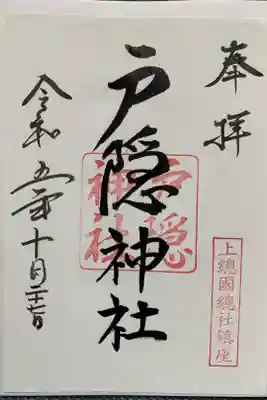 奉拝
戸隠神社
戸隠
神社
上總國總社鎮座
令和五年十月二十七日